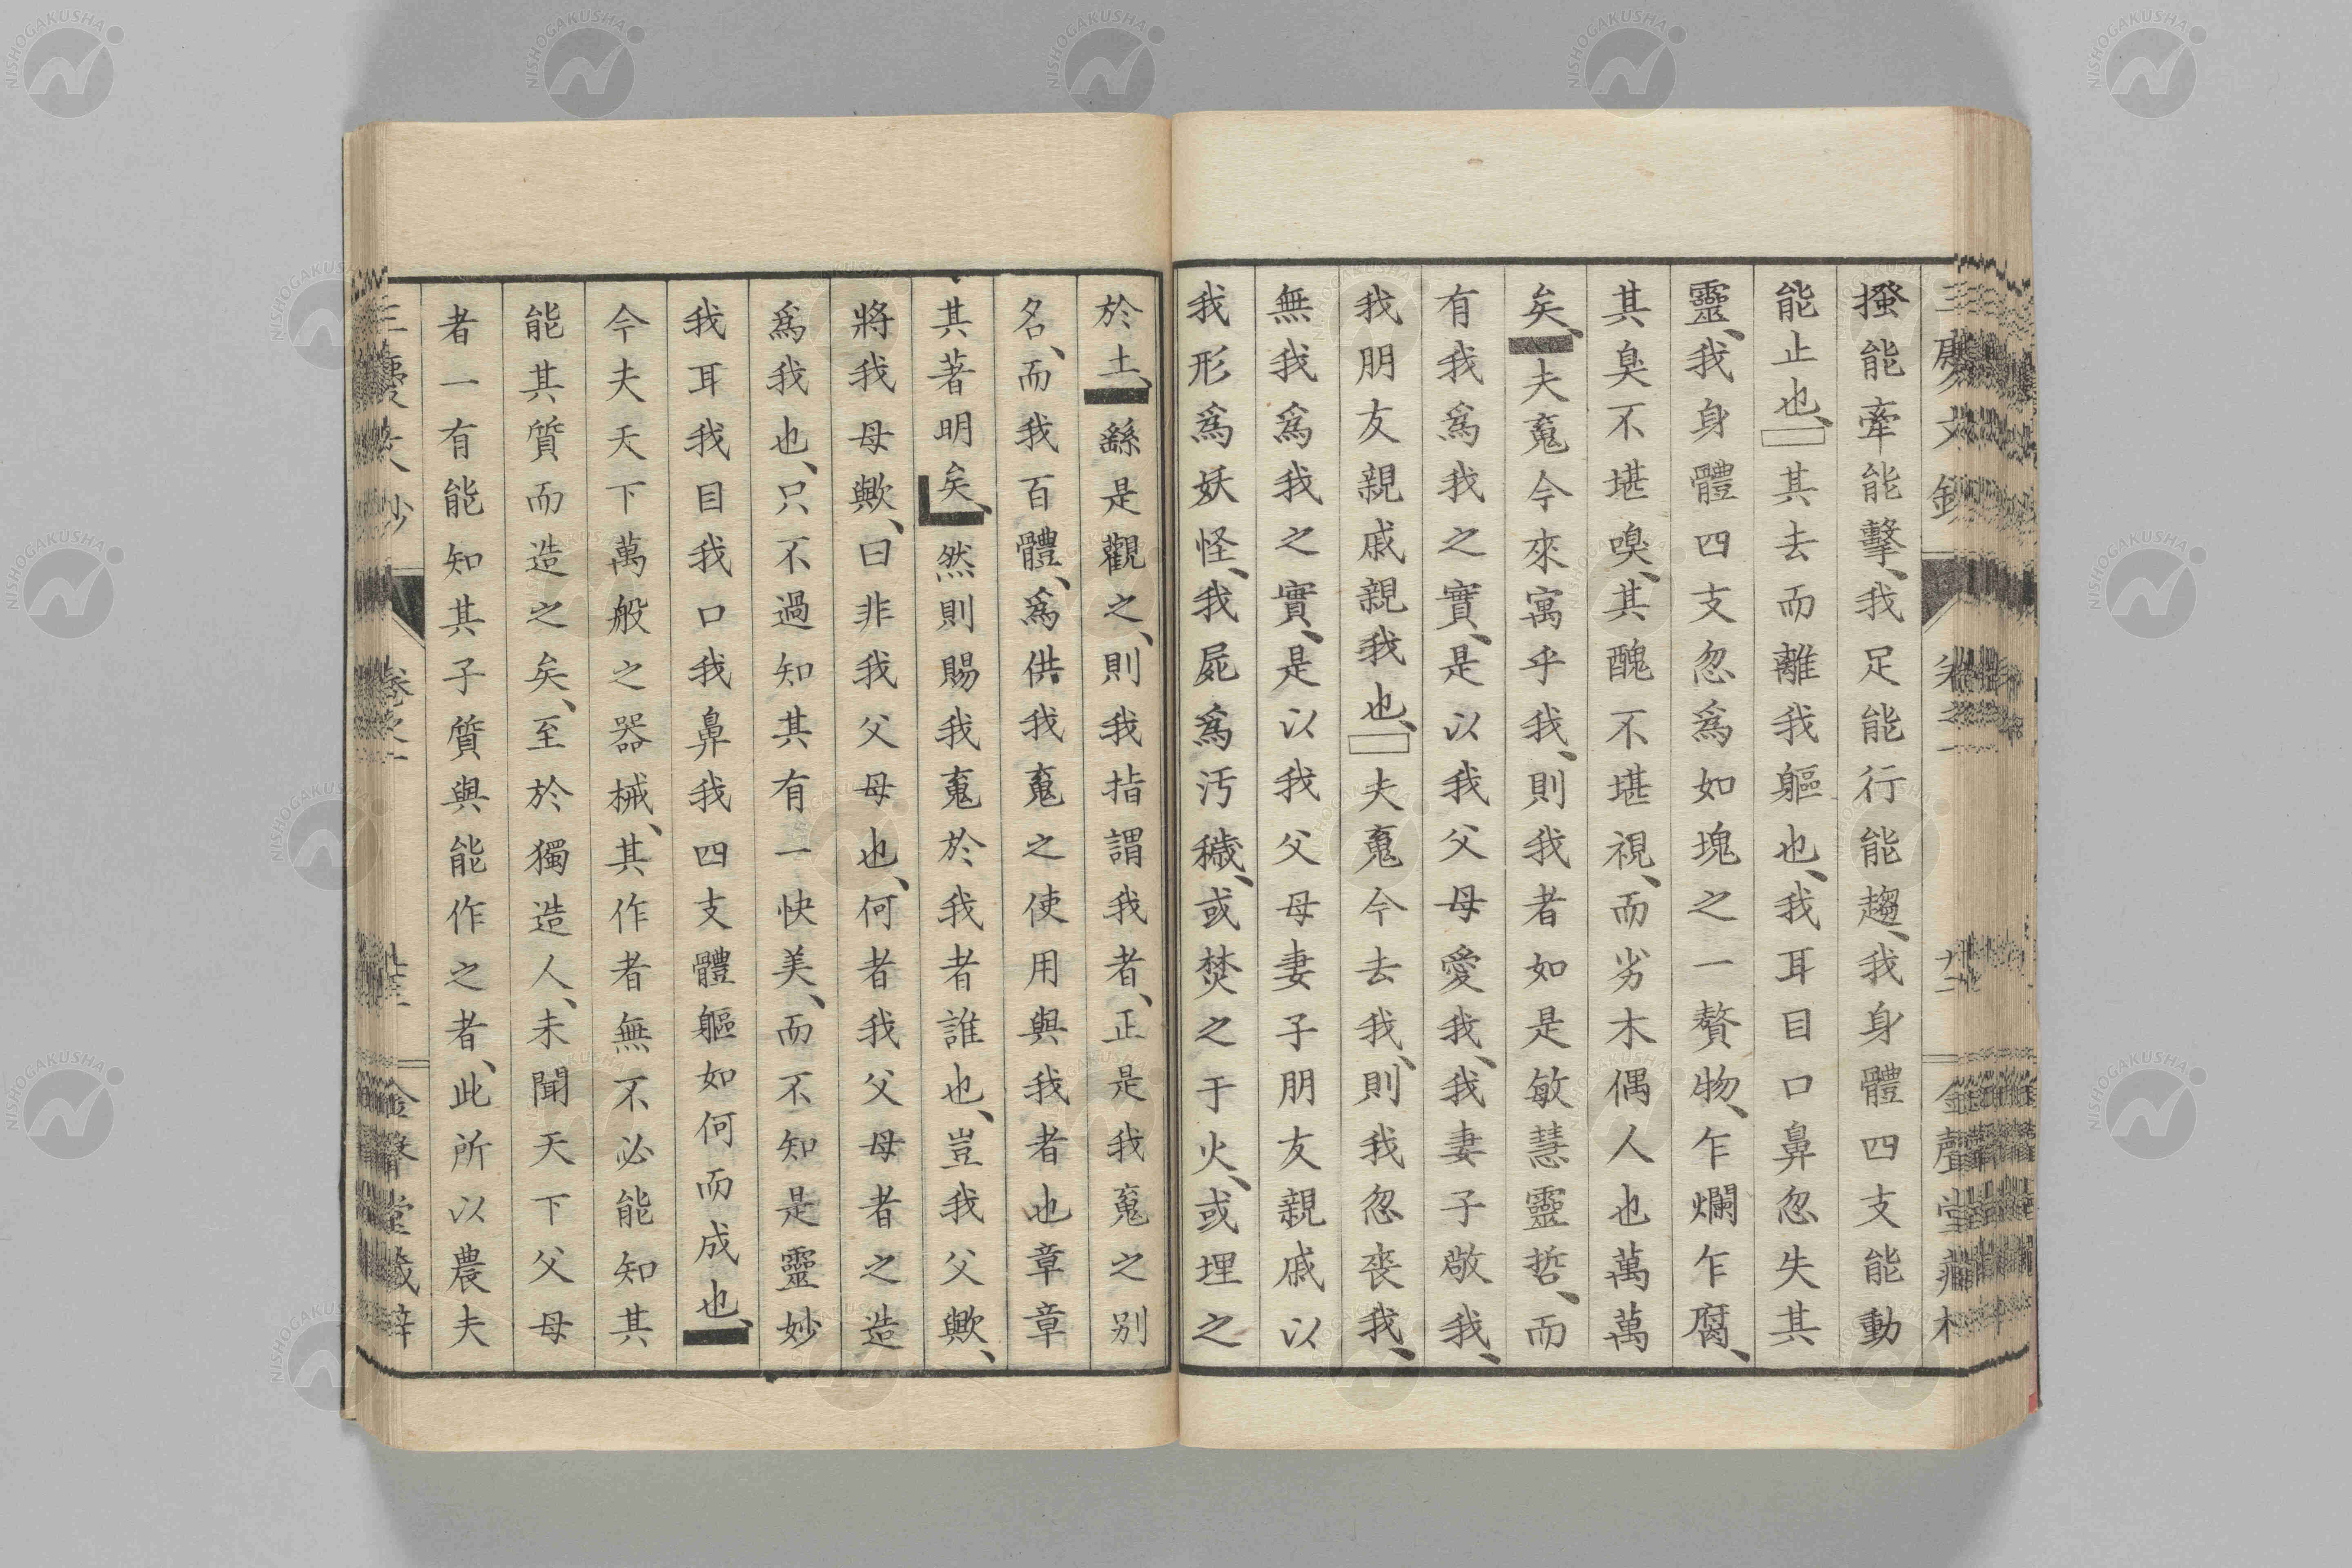 搔能牽能擊、我足能行能趨、我身體四支能動
能止也、其去而離我軀也、我耳目口鼻忽失其
靈、我身體四支忽爲如塊之一贅物、乍爛乍腐、
其臭不堪嗅、其醜不堪視、而劣木偶人也萬萬
矣、夫䰟今來寓乎我、則我者如是敏慧靈哲、而
有我爲我之實、是以我父母愛我、我妻子敬我、
我朋友親戚親我也、夫䰟今去我、則我忽喪我、
無我爲我之實、是以我父母妻子朋友親戚以
我形爲妖怪、我屍爲汚穢、或焚之于火、或埋之
於土、繇是觀之、則我指謂我者、正是我䰟之別
名、而我百體、爲供我䰟之使用與我者也章章
其著明矣、然則賜我䰟於我者誰也、豈我父歟、
將我母歟、曰非我父母也、何者我父母者之造
爲我也、只不過知其有一快美、而不知是靈妙
我耳我目我口我鼻我四支體軀如何而成也、
今夫天下萬般之器械、其作者無不必能知其
能其質而造之矣、至於獨造人、未聞天下父母
者一有能知其子質與能作之者、此所以農夫
NISHOGAKUSHA